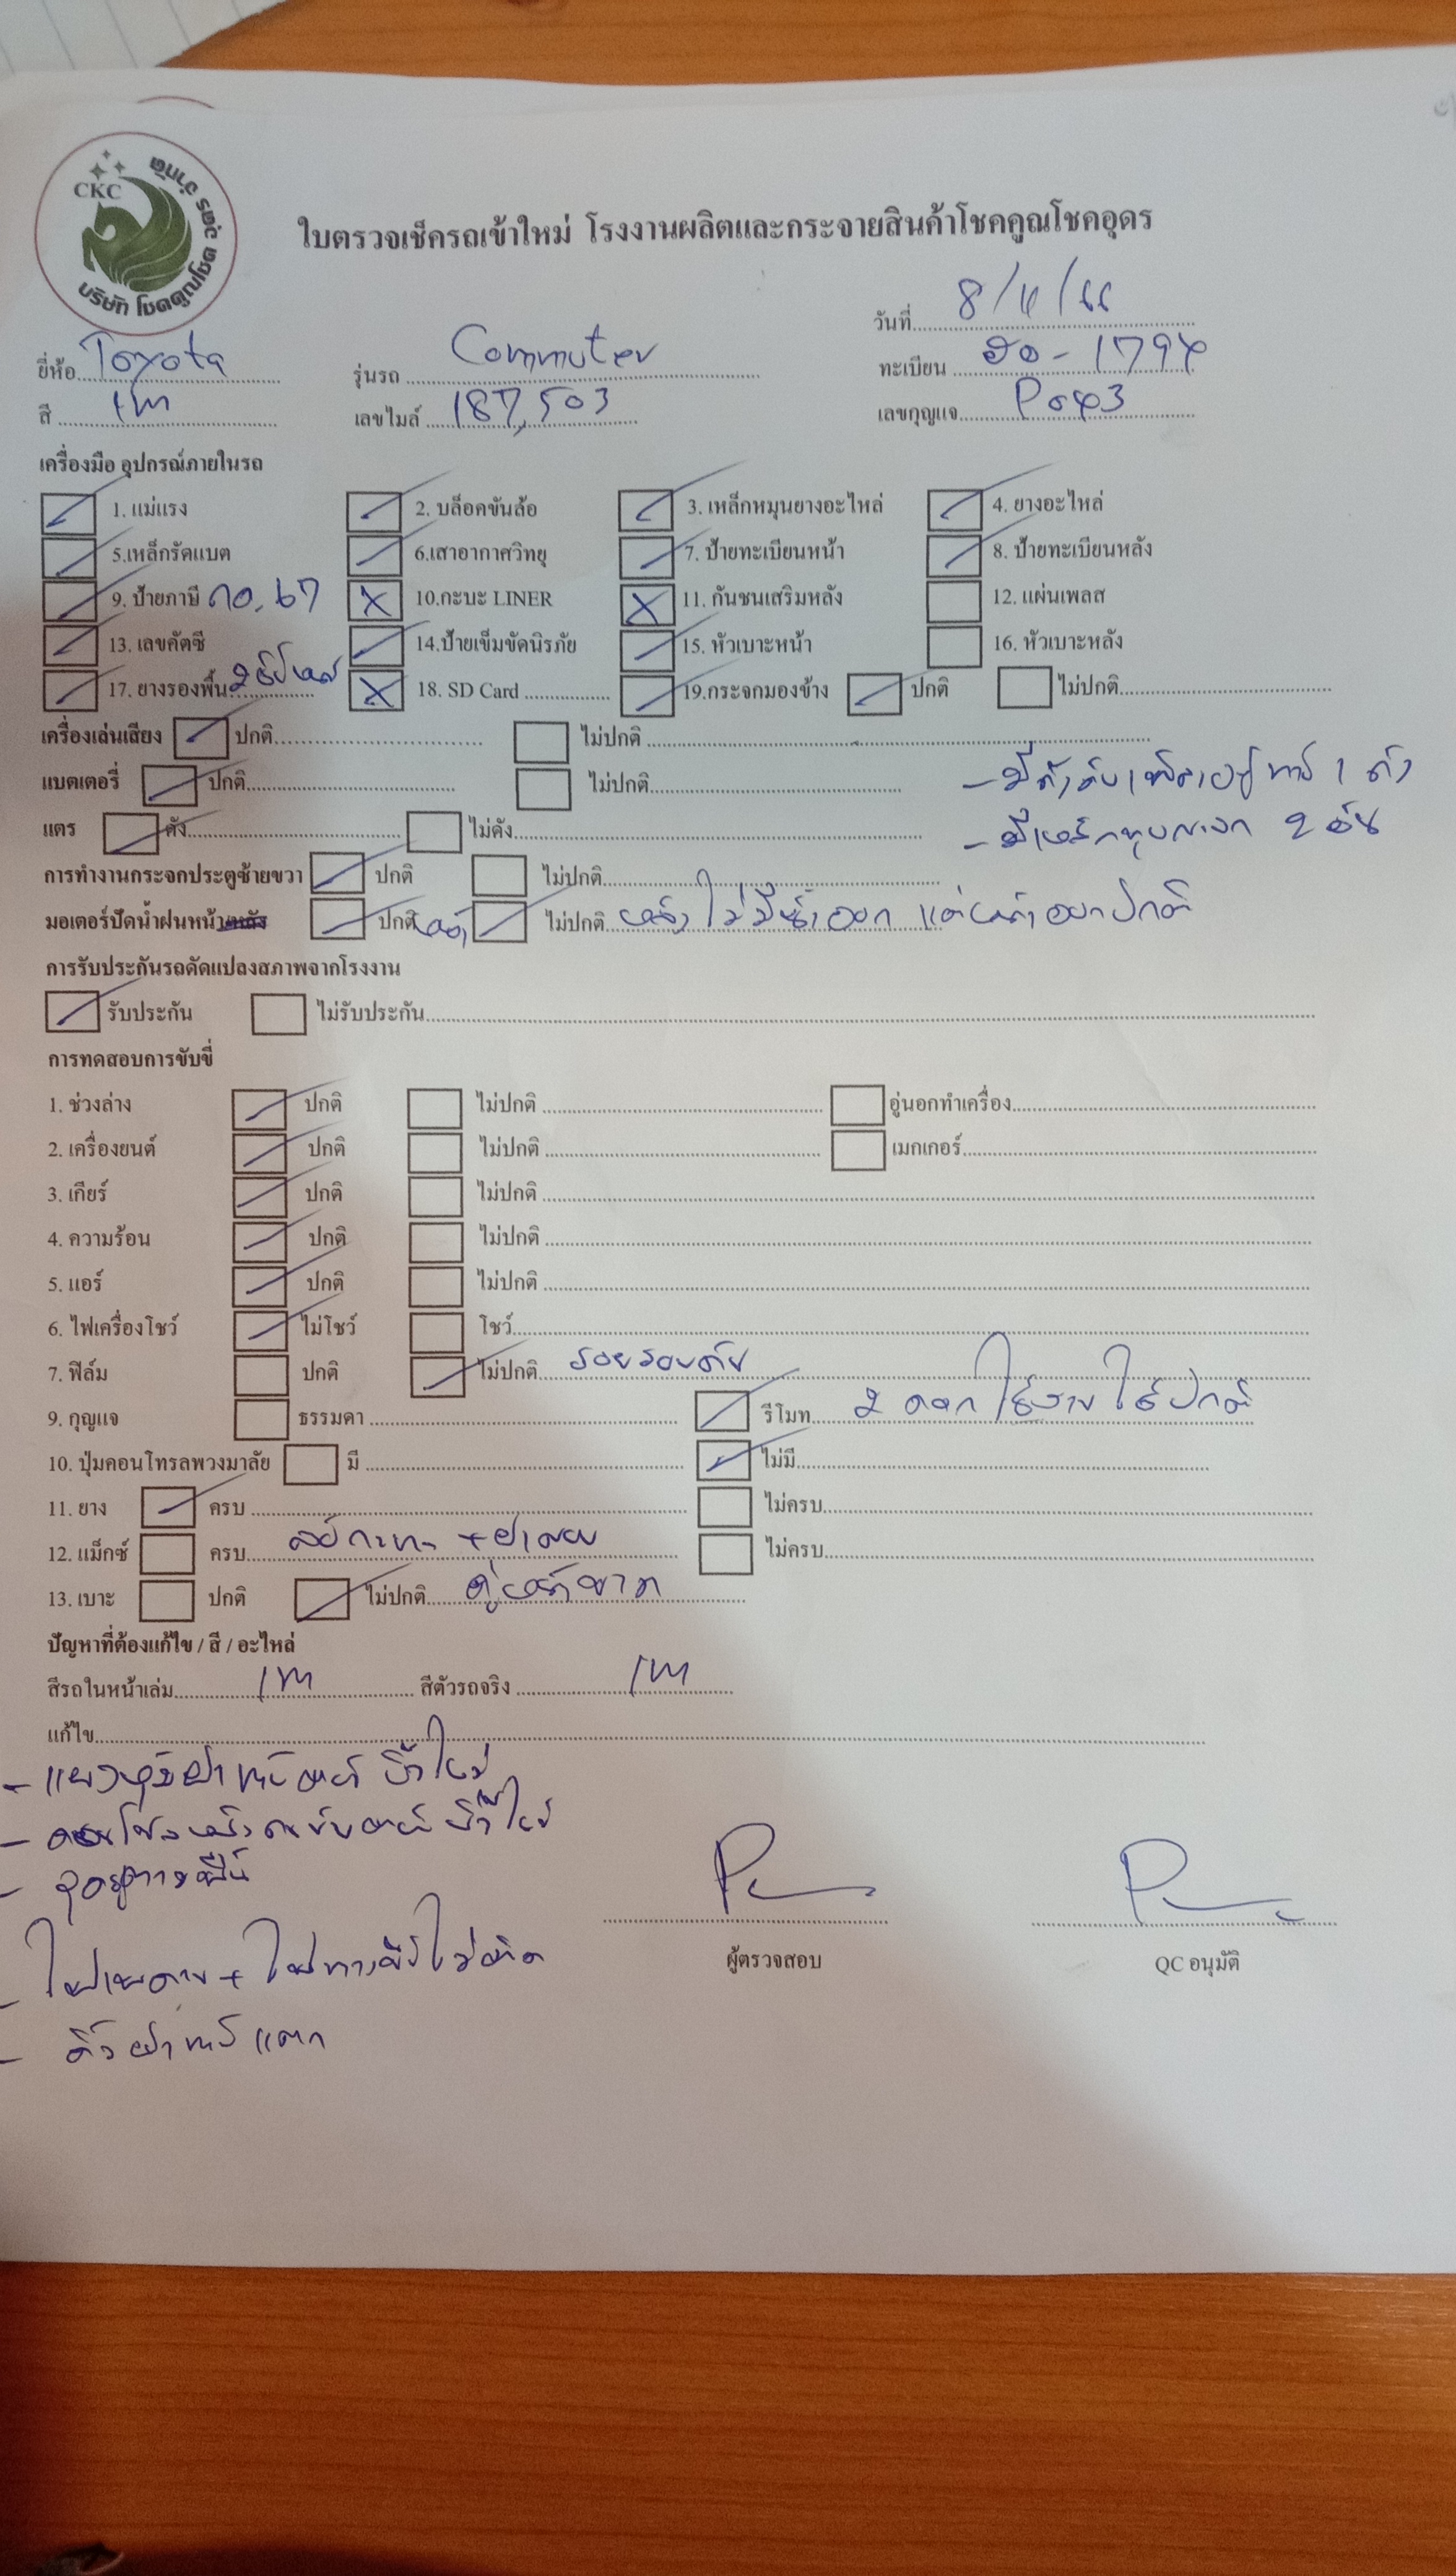 CKC
บริษัท โชคคูณโชค อุดร จำกัด
ใบตรวจเช็ครถเข้าใหม่ โรงงานผลิตและกระจายสินค้าโชคคูณโชคอุดร
วันที่ 8/11/66
ยี่ห้อ Toyota รุ่นรถ Commuter ทะเบียน ฮอ-1794
สี เทา เลขไมล์ 187,503 เลขกุญแจ P043
เครื่องมือ อุปกรณ์ภายในรถ
1. แม่แรง 2. บล็อคขันล้อ 3. เหล็กหมุนยางอะไหล่ 4. ยางอะไหล่
5.เหล็กรัดแบต 6.เสาอากาศวิทยุ 7. ป้ายทะเบียนหน้า 8. ป้ายทะเบียนหลัง
9. ป้ายภาษี กอ. 67 10.กะบะ LINER 11. กันชนเสริมหลัง 12. แผ่นเพลส
13. เลขคัตซี 14.ป้ายเข็มขัดนิรภัย 15. หัวเบาะหน้า 16. หัวเบาะหลัง
17. ยางรองพื้น 18. SD Card 19.กระจกมองข้าง ปกติ ไม่ปกติ
เครื่องเล่นเสียง ปกติ ไม่ปกติ
แบตเตอรี่ ปกติ ไม่ปกติ
- มีถังดับเพลิงอยู่ท้าย 1 ถัง
แตร ดัง ไม่ดัง
- มีเหล็กทุบกระจก 2 อัน
การทำงานกระจกประตูซ้ายขวา ปกติ ไม่ปกติ
มอเตอร์ปัดน้ำฝนหน้า/หลัง ปกติ หน้า ไม่ปกติ หลังไม่มีน้ำออก แต่หน้าออกปกติ
การรับประกันรถดัดแปลงสภาพจากโรงงาน
รับประกัน ไม่รับประกัน
การทดสอบการขับขี่
1. ช่วงล่าง ปกติ ไม่ปกติ อู่นอกทำเครื่อง
2. เครื่องยนต์ ปกติ ไม่ปกติ เมกเกอร์
3. เกียร์ ปกติ ไม่ปกติ
4. ความร้อน ปกติ ไม่ปกติ
5. แอร์ ปกติ ไม่ปกติ
6. ไฟเครื่องโชว์ ไม่โชว์ โชว์
7. ฟิล์ม ปกติ ไม่ปกติ รอยรอบคัน
9. กุญแจ ธรรมดา รีโมท 2 ดอก ใช้งานได้ปกติ
10. ปุ่มคอนโทรลพวงมาลัย มี ไม่มี
11. ยาง ครบ ไม่ครบ
12. แม็กซ์ ครบ ล้อกะทะ + ฝาครอบ ไม่ครบ
13. เบาะ ปกติ ไม่ปกติ คู่หน้าขาด
ปัญหาที่ต้องแก้ไข / สี / อะไหล่
สีรถในหน้าเล่ม เทา สีตัวรถจริง เทา
แก้ไข
ผู้ตรวจสอบ QC อนุมัติ
- ไฟเพดาน + ไฟทางขึ้นไม่ติด
- คิ้วฝาท้ายแตก